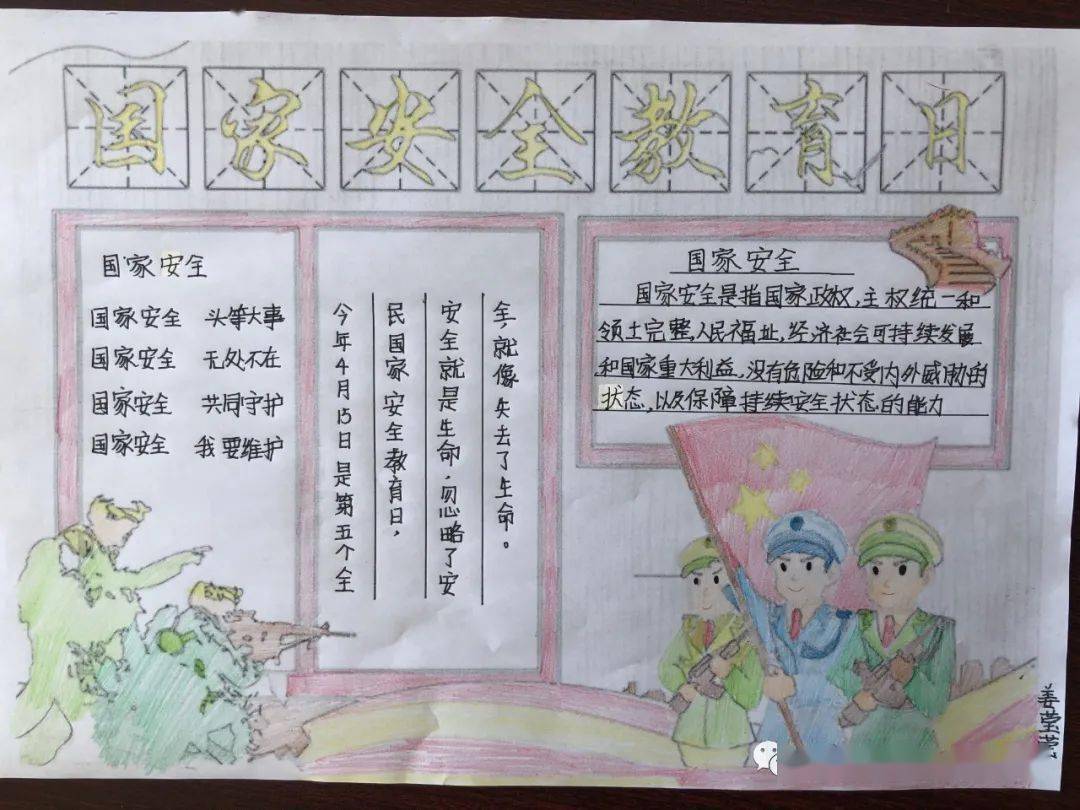 国家安全教育日
国家安全
国家安全 头等大事
国家安全 无处不在
国家安全 共同守护
国家安全 我要维护
今年4月15日是第五个全
民国家安全教育日,
安全就是生命.忽略了安
全,就像失去了生命。
国家安全
国家安全是指国家政权,主权统一和
领土完整,人民福址,经济社会可持续发展
和国家重大利益,没有危险和不受内外威胁的
状态,以及保障持续安全状态的能力
姜莹莹